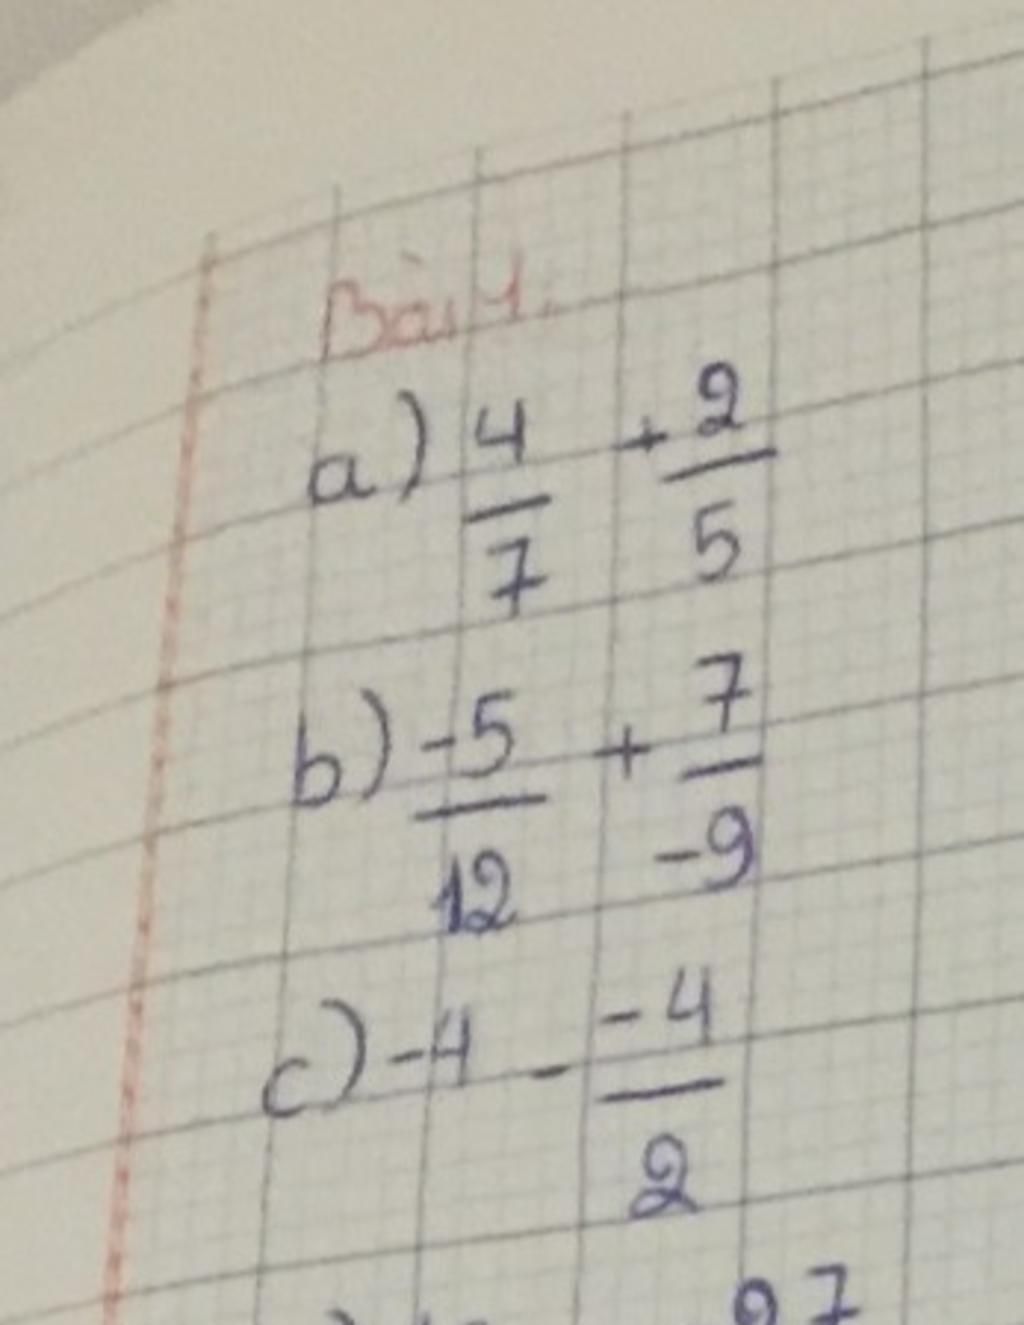 Bài 4.
a) 4/7 + 2/5
b) -5/12 + 7/-9
c) -4 - -4/2